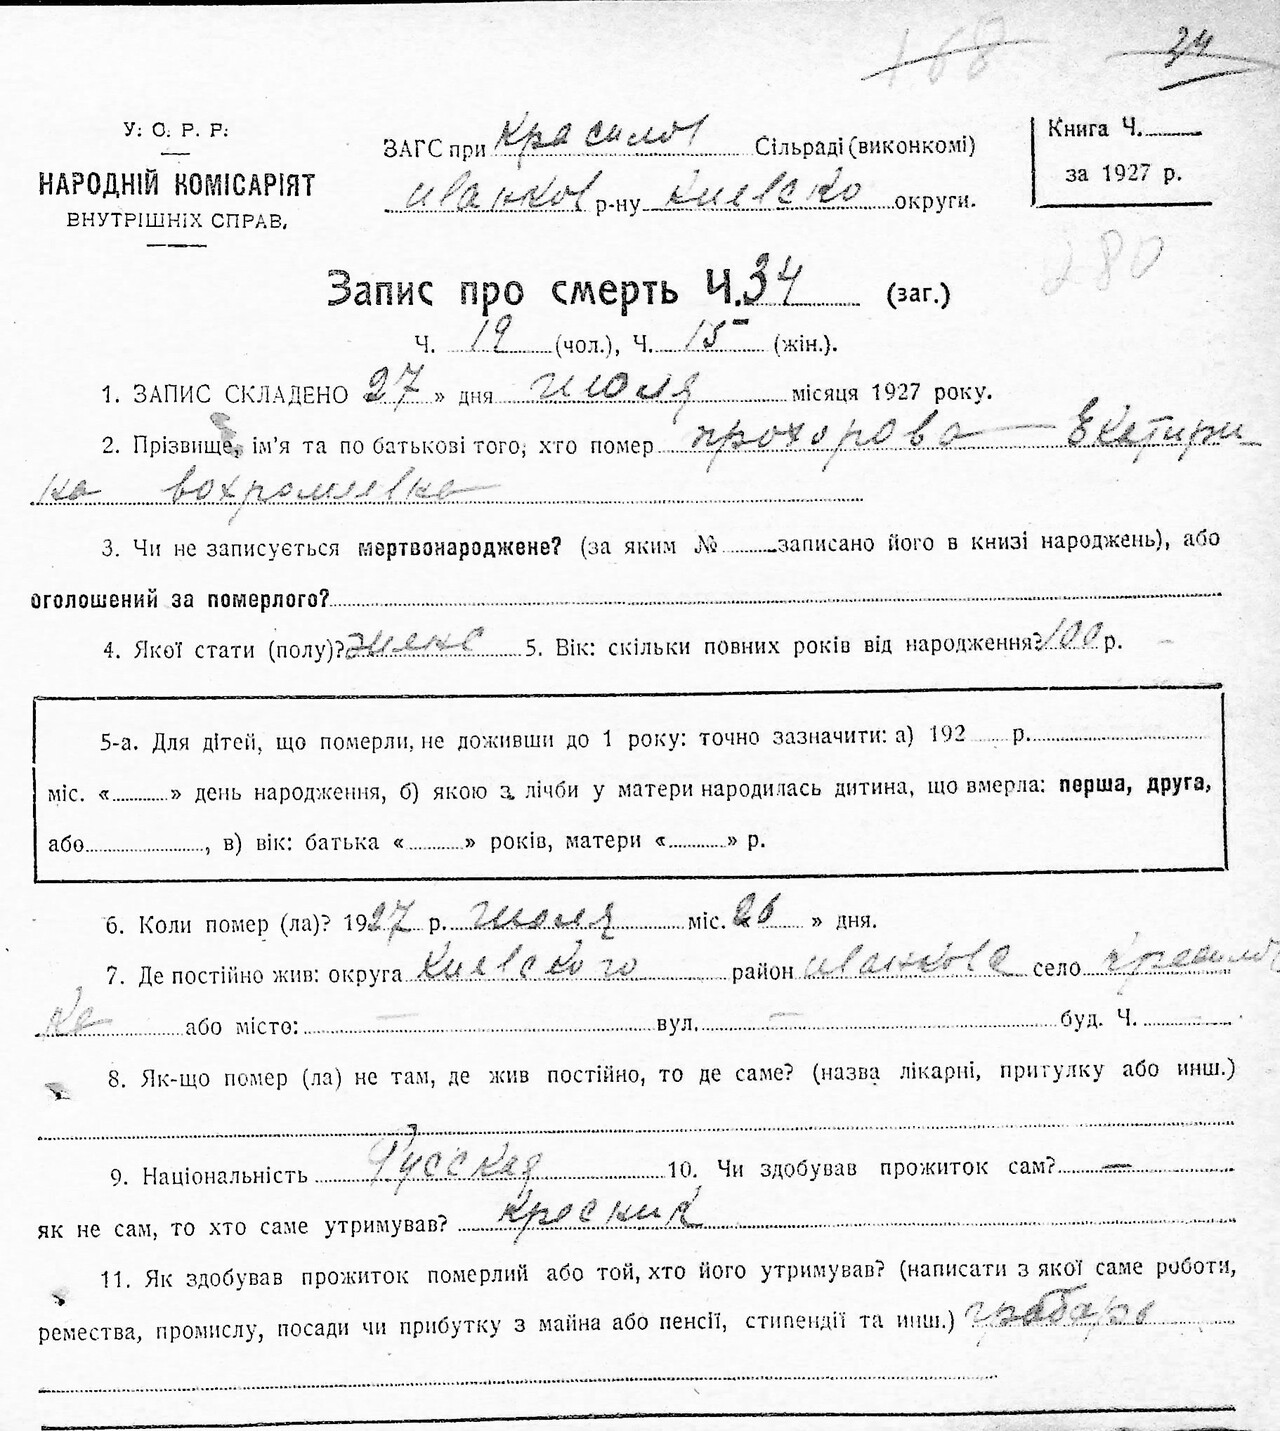 168 34
У: С: Р. Р:
НАРОДНІЙ КОМІСАРІЯТ
ВНУТРІШНІХ СПРАВ.
ЗАГС при Красилов Сільраді (виконкомі)
Иванков р-ну Киевско округи.
Книга Ч.
за 1927 р.
280
Запис про смерть Ч. 34 (заг.)
Ч. 19 (чол.), Ч. 15 (жін.).
1. ЗАПИС СКЛАДЕНО 27 » дня июля місяця 1927 року.
2. Прізвище, ім'я та по батькові того, хто помер прохорова Екатири
на вохромиевна
3. Чи не записується мертвонароджене? (за яким № записано його в книзі народжень), або
оголошений за померлого?
4. Якої стати (полу)? женс 5. Вік: скільки повних років від народження? 100 р.
5-а. Для дітей, що померли, не доживши до 1 року: точно зазначити: а) 192 р.
міс. « » день народження, б) якою з лічби у матери народилась дитина, що вмерла: перша, друга,
або , в) вік: батька « » років, матери « » р.
6. Коли помер (ла)? 1927 р. июля міс. « 26 » дня.
7. Де постійно жив: округа Киевского район иванкова село красилов
ка або місто: — вул. — буд. Ч. —
8. Як-що помер (ла) не там, де жив постійно, то де саме? (назва лікарні, притулку або инш.)
9. Національність Русская 10. Чи здобував прожиток сам? —
як не сам, то хто саме утримував?
11. Як здобував прожиток померлий або той, хто його утримував? (написати з якої саме роботи,
ремества, промислу, посади чи прибутку з майна або пенсії, стипендії та инш.) грабарь